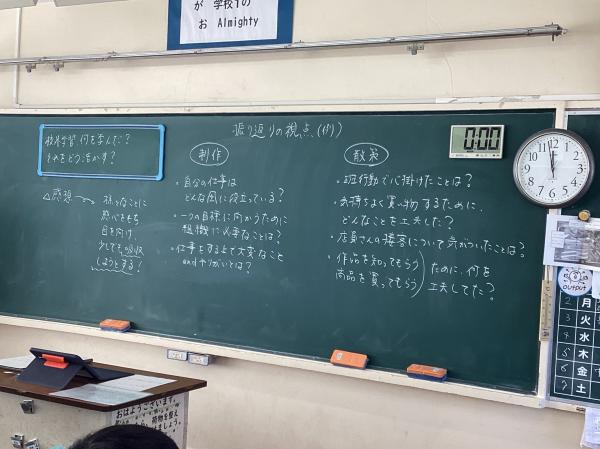 が 学校1の
お Almighty
振り返りの視点(例)
校外学習 何を学んだ?
それをどう活かす?
△感想→
様々なことに
関心をもち
目を向け、
少しでも吸収
しようとする!
制作
・自分の仕事は
どんな風に役立っている?
・一つの目標に向かうために
組織に必要なことは?
・仕事をする上で大変なこと
andやりがいとは?
散策
・班行動で心掛けたことは?
・お気持ちよく買い物するために、
どんなことを工夫した?
・店員さんの接客について気がついたことは?
・作品を知ってもらう
商品を買ってもらう
ために、何を
工夫してた?
0:00
12
OUTPUT
2 月
3 火
4 水
5 木
6 金
7 土
おはようございます。
荷物を整え
ましょう。